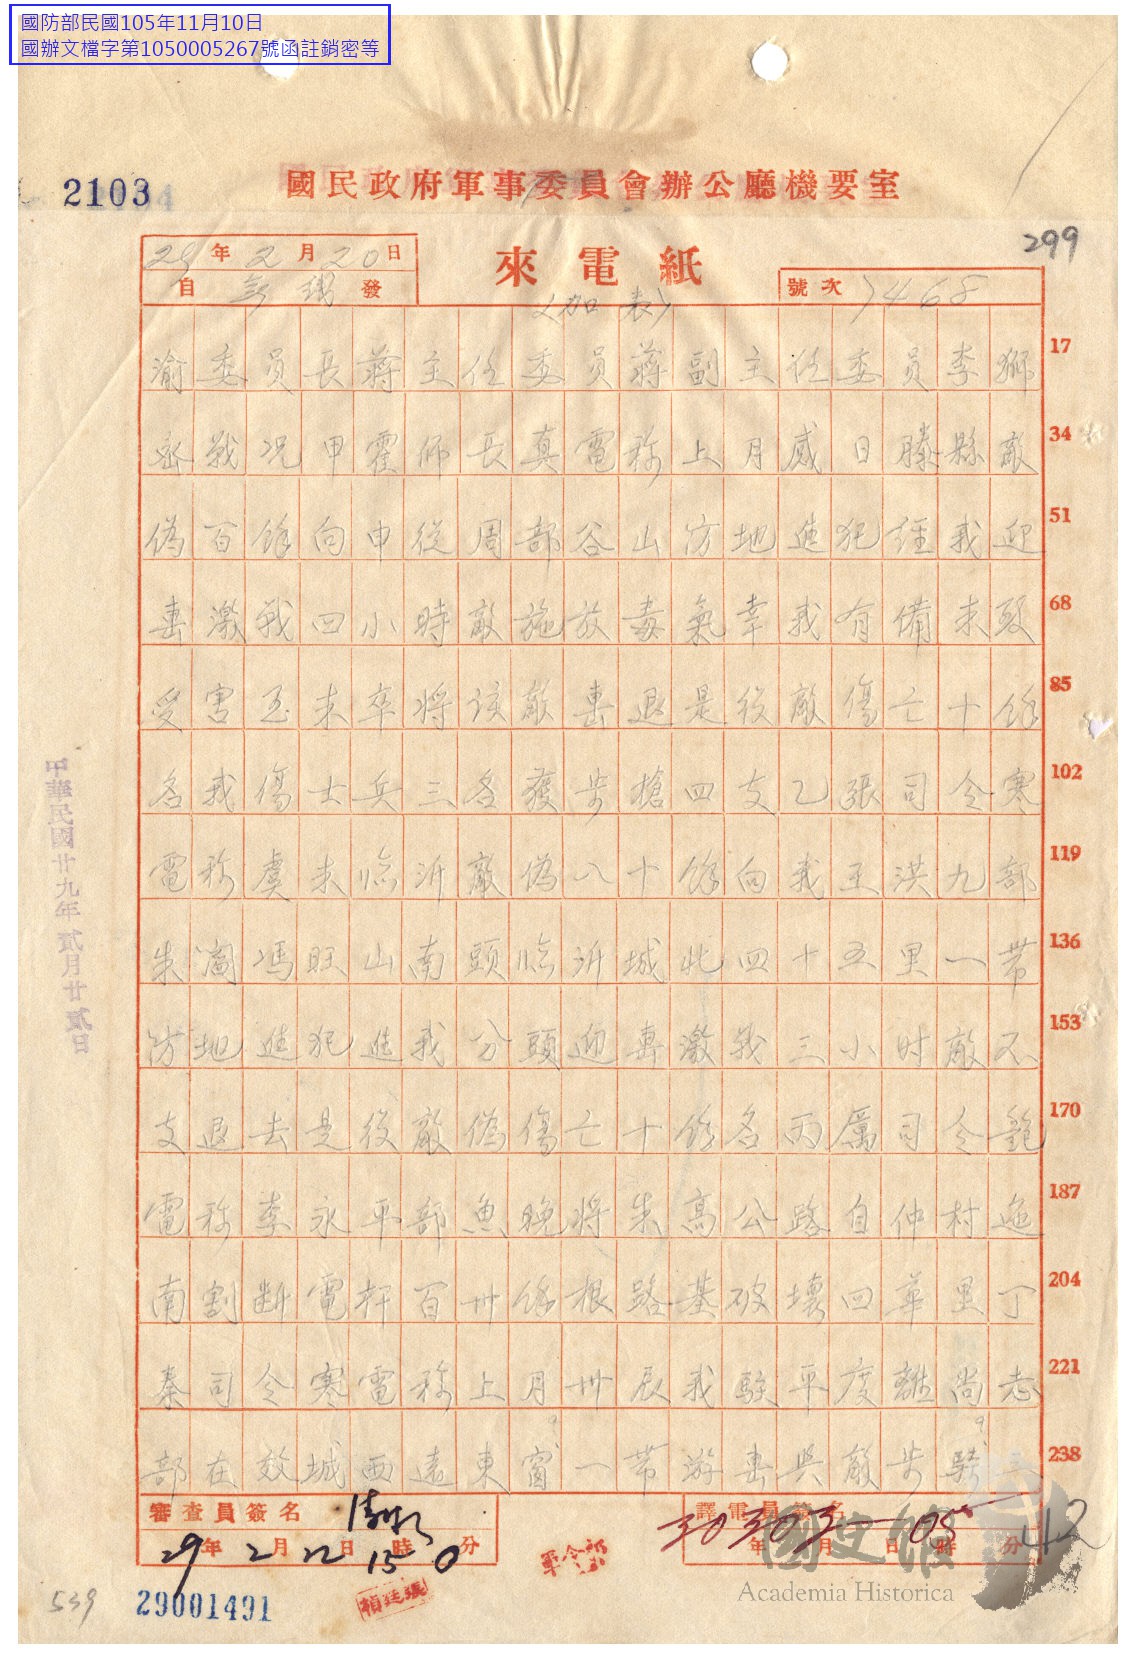 國防部民國105年11月10日
國辦文檔字第1050005267號函註銷密等
2103
國民政府軍事委員會辦公廳機要室
299
29年2月20日
自發
來電紙
(加表)
號次 7468
渝委員長蔣主任委員蔣副主任委員李 17
戰況甲霍師長真電称上月感日滕縣敵 34
偽百餘向申從周部谷山防地進犯經我迎 51
擊激战四小時敵施放毒氣幸我有備未致 68
受害至未卒将该敵擊退是役敵傷亡十餘 85
名我傷士兵三名獲步槍四支乙張司令寒 102
電称虞未临沂敵偽八十餘向我王洪九部 119
朱馮旺山南頭临沂城北四十五里一帶 136
防地進犯進我分頭迎擊激战三小时敵不 153
支退去是役敵偽傷亡十餘名丙厲司令 170
電称李永平部魚晚将朱高公路自仲村迤 187
南割断電杆百卅餘根路基破壞四華里丁 204
秦司令寒電称上月卅辰我駐平度離尚志 221
部在效城西遠東窗一帶游擊與敵步騎 238
中華民國廿九年貳月廿貳日
審查員簽名
29年2月22日15時0分
譯電員簽名
年月日時分
30303—05
412
軍令部
539
29001491
國史館
Academia Historica